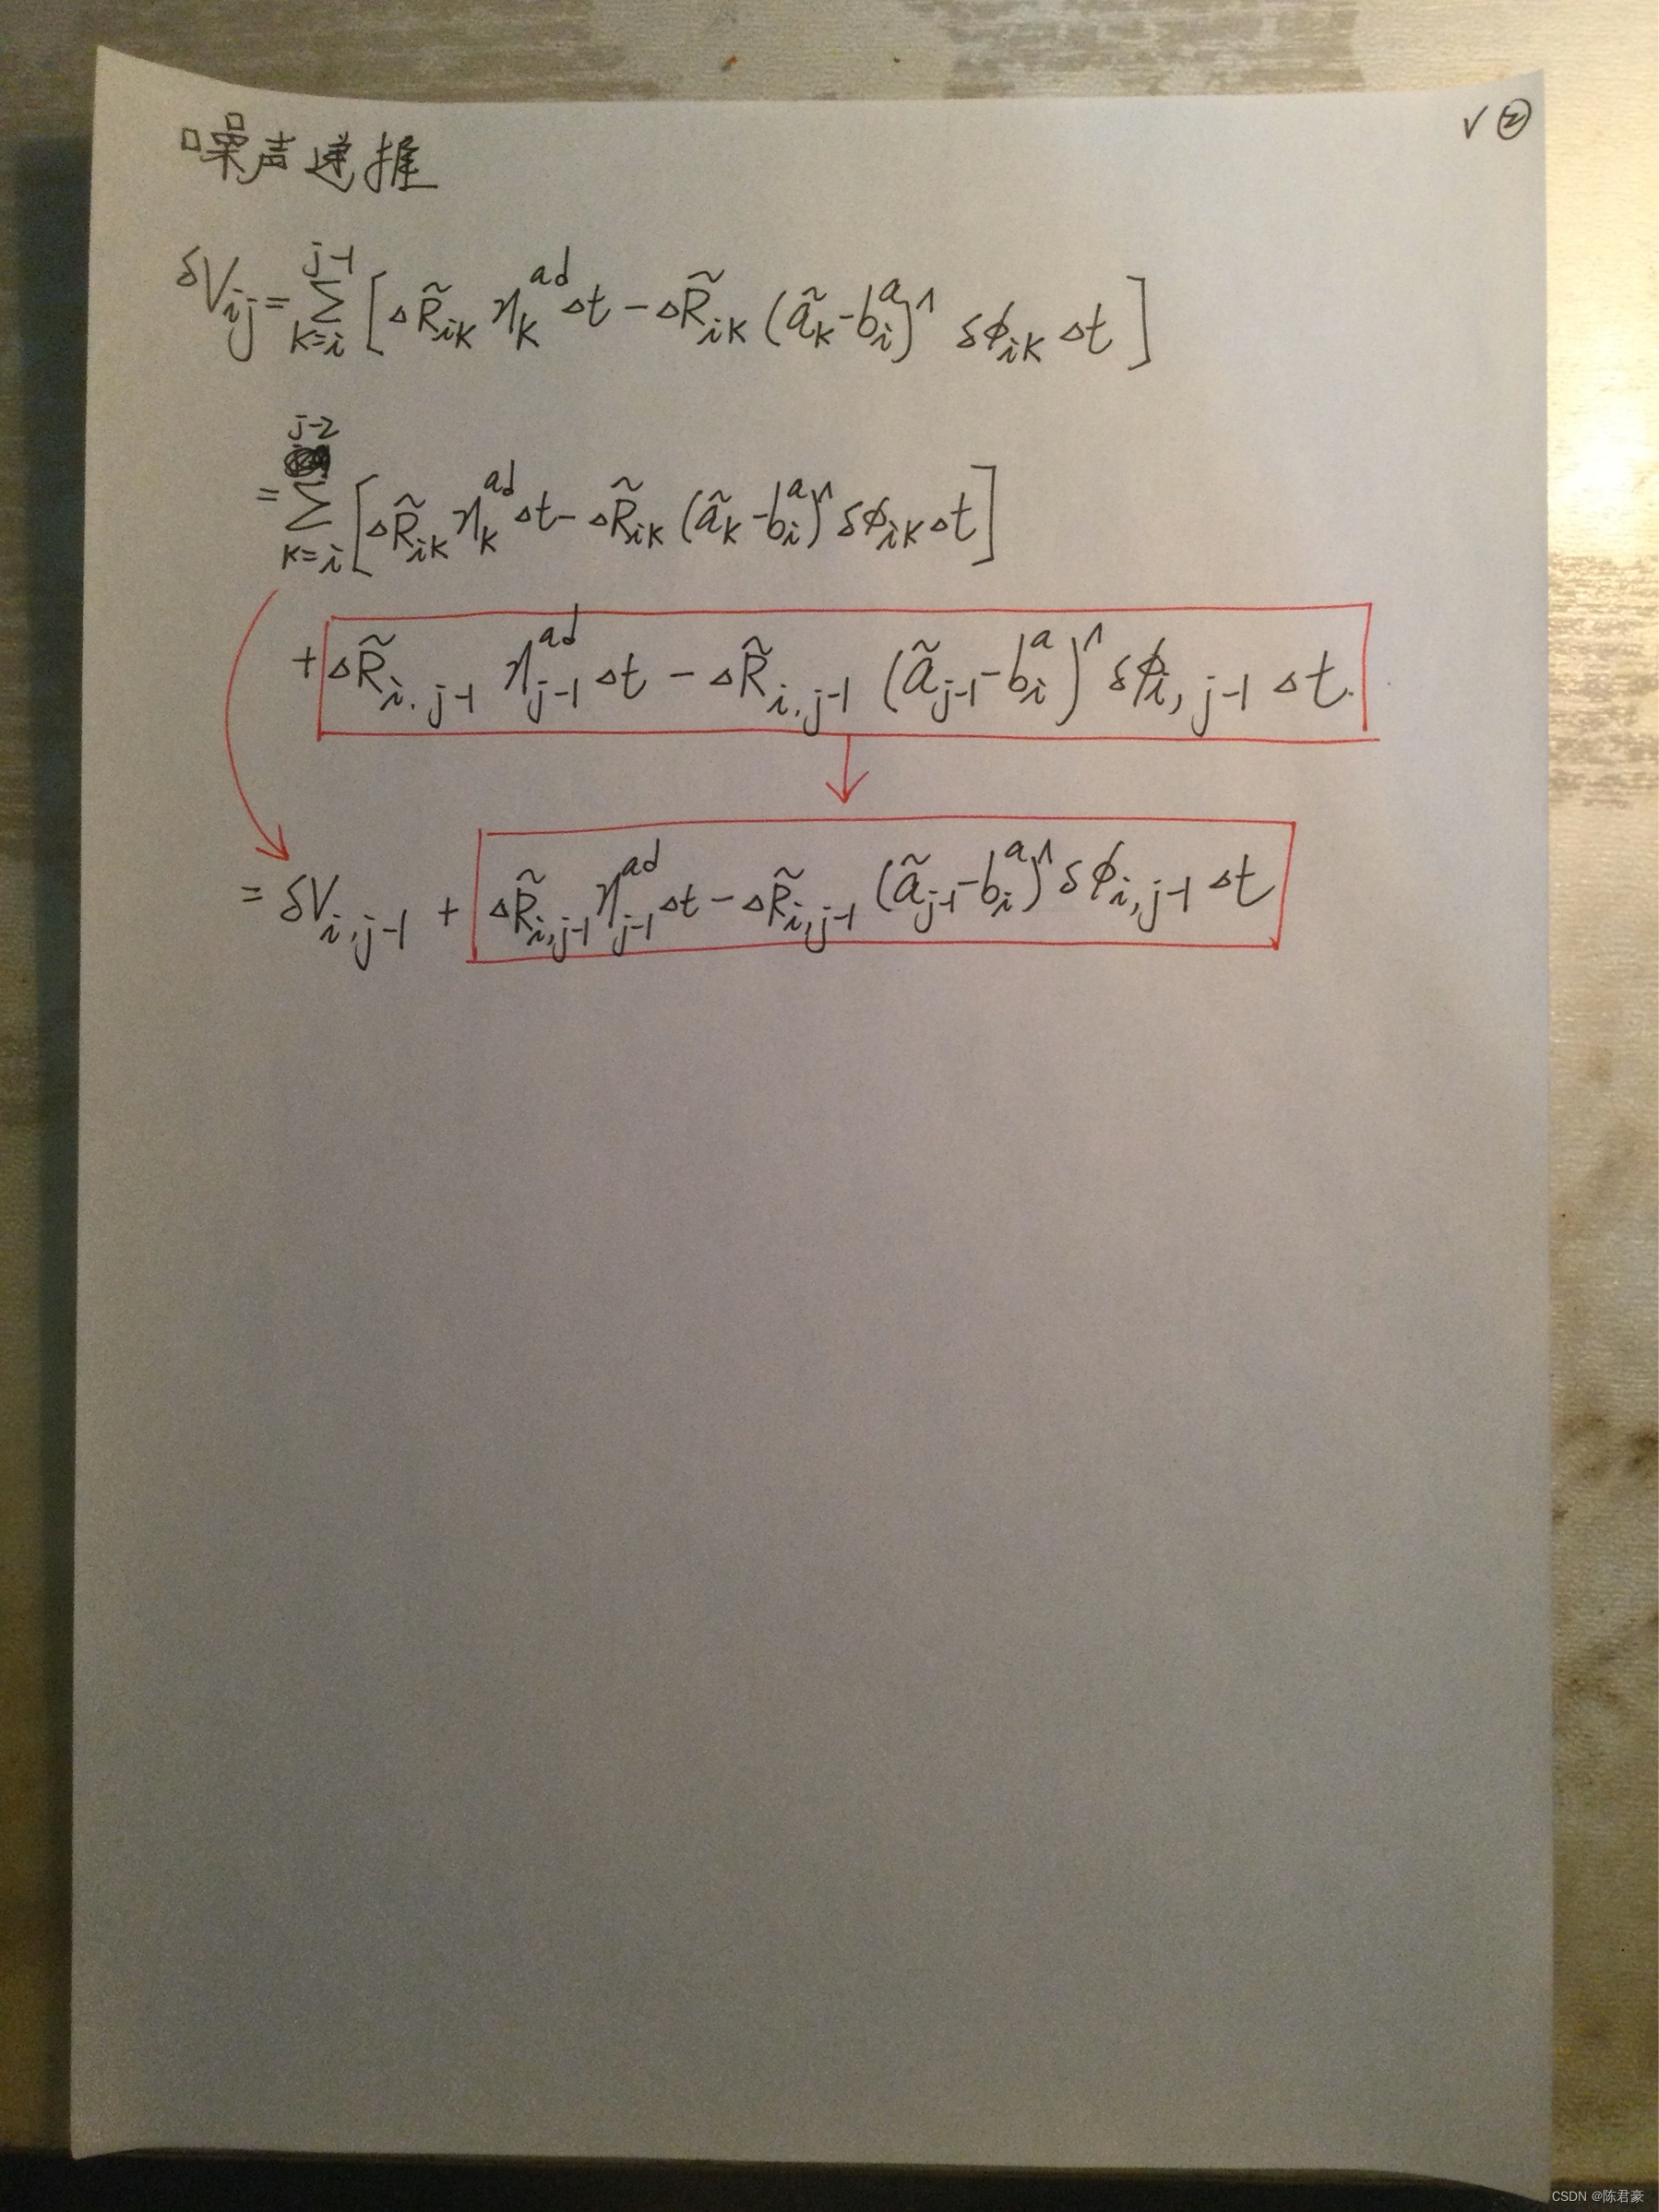 噪声递推
V②
δV_{ij} = \sum_{k=i}^{j-1} [ Δ\tilde{R}_{ik} η_k^{ad} Δt - Δ\tilde{R}_{ik} (\tilde{a}_k - b_i^a)^∧ δϕ_{ik} Δt ]
= \sum_{k=i}^{j-2} [ Δ\tilde{R}_{ik} η_k^{ad} Δt - Δ\tilde{R}_{ik} (\tilde{a}_k - b_i^a)^∧ δϕ_{ik} Δt ]
+ Δ\tilde{R}_{i,j-1} η_{j-1}^{ad} Δt - Δ\tilde{R}_{i,j-1} (\tilde{a}_{j-1} - b_i^a)^∧ δϕ_{i,j-1} Δt.
= δV_{i,j-1} + Δ\tilde{R}_{i,j-1} η_{j-1}^{ad} Δt - Δ\tilde{R}_{i,j-1} (\tilde{a}_{j-1} - b_i^a)^∧ δϕ_{i,j-1} Δt
CSDN @陈君豪